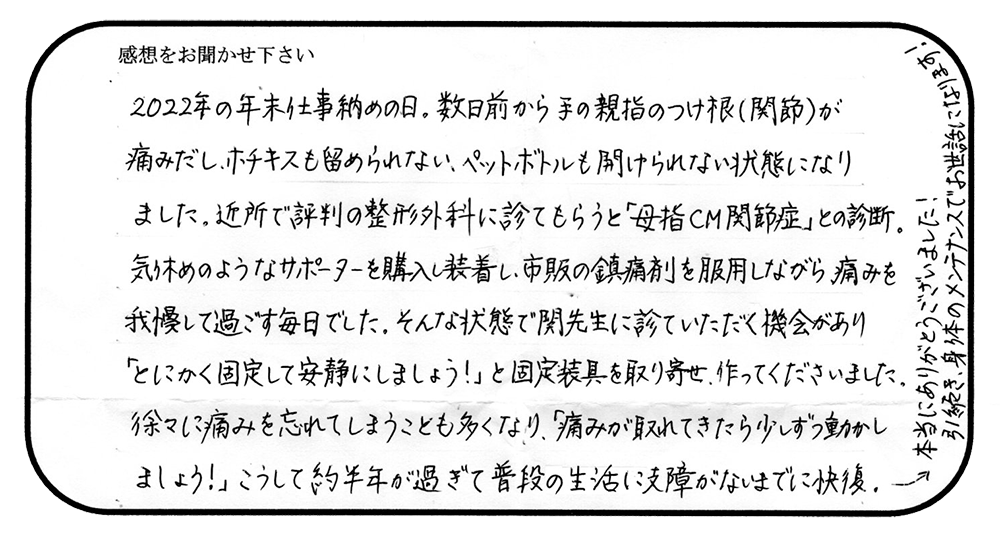 感想をお聞かせ下さい
2022年の年末仕事納めの日。数日前から手の親指のつけ根(関節)が
痛みだし、ホチキスも留められない、ペットボトルも開けられない状態になり
ました。近所で評判の整形外科に診てもらうと「母指CM関節症」との診断。
気休めのようなサポーターを購入し装着し、市販の鎮痛剤を服用しながら、痛みを
我慢して過ごす毎日でした。そんな状態で関先生に診ていただく機会があり
「とにかく固定して安静にしましょう!」と固定装具を取り寄せ、作ってくださいました。
徐々に痛みを忘れてしまうことも多くなり、「痛みが取れてきたら少しずつ動かし
ましょう!」こうして約半年が過ぎて普段の生活に支障がないまでに快復。
→本当にありがとうございました!
引き続き、身体のメンテナンスでお世話になります!